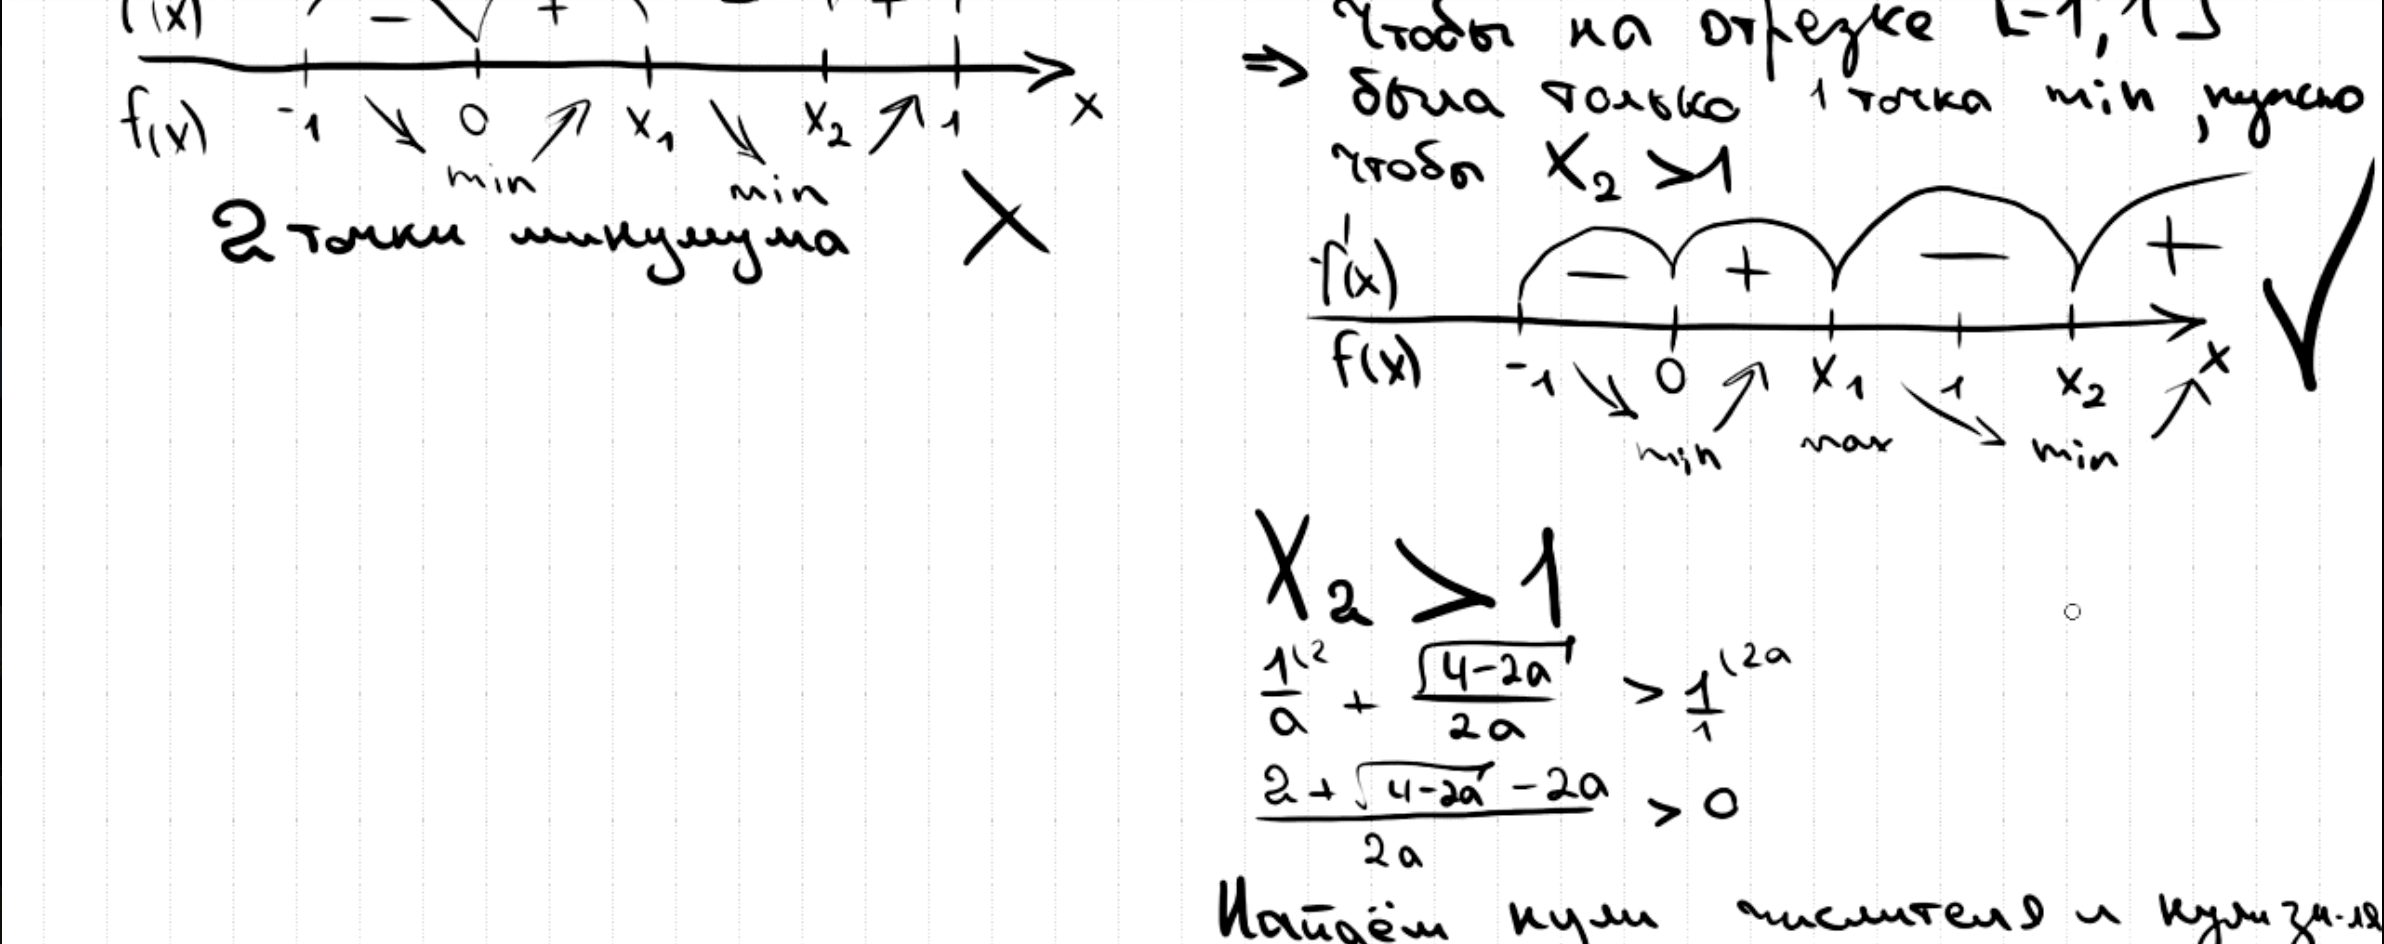 f'(x) − + − +
f(x) -1 0 x₁ x₂ 1 x
min min
2 точки минимума
Чтобы на отрезке [-1, 1]
⇒ была только 1 точка min, нужно
чтобы x₂ > 1
f'(x) − + − +
f(x) -1 0 x₁ 1 x₂ x
min max min
x₂ > 1
1/a (2 + √(4-2a)/2a > 1/1 (2a
(2 + √(4-2a) - 2a)/2a > 0
Найдём нули числителя и нули зн-ля